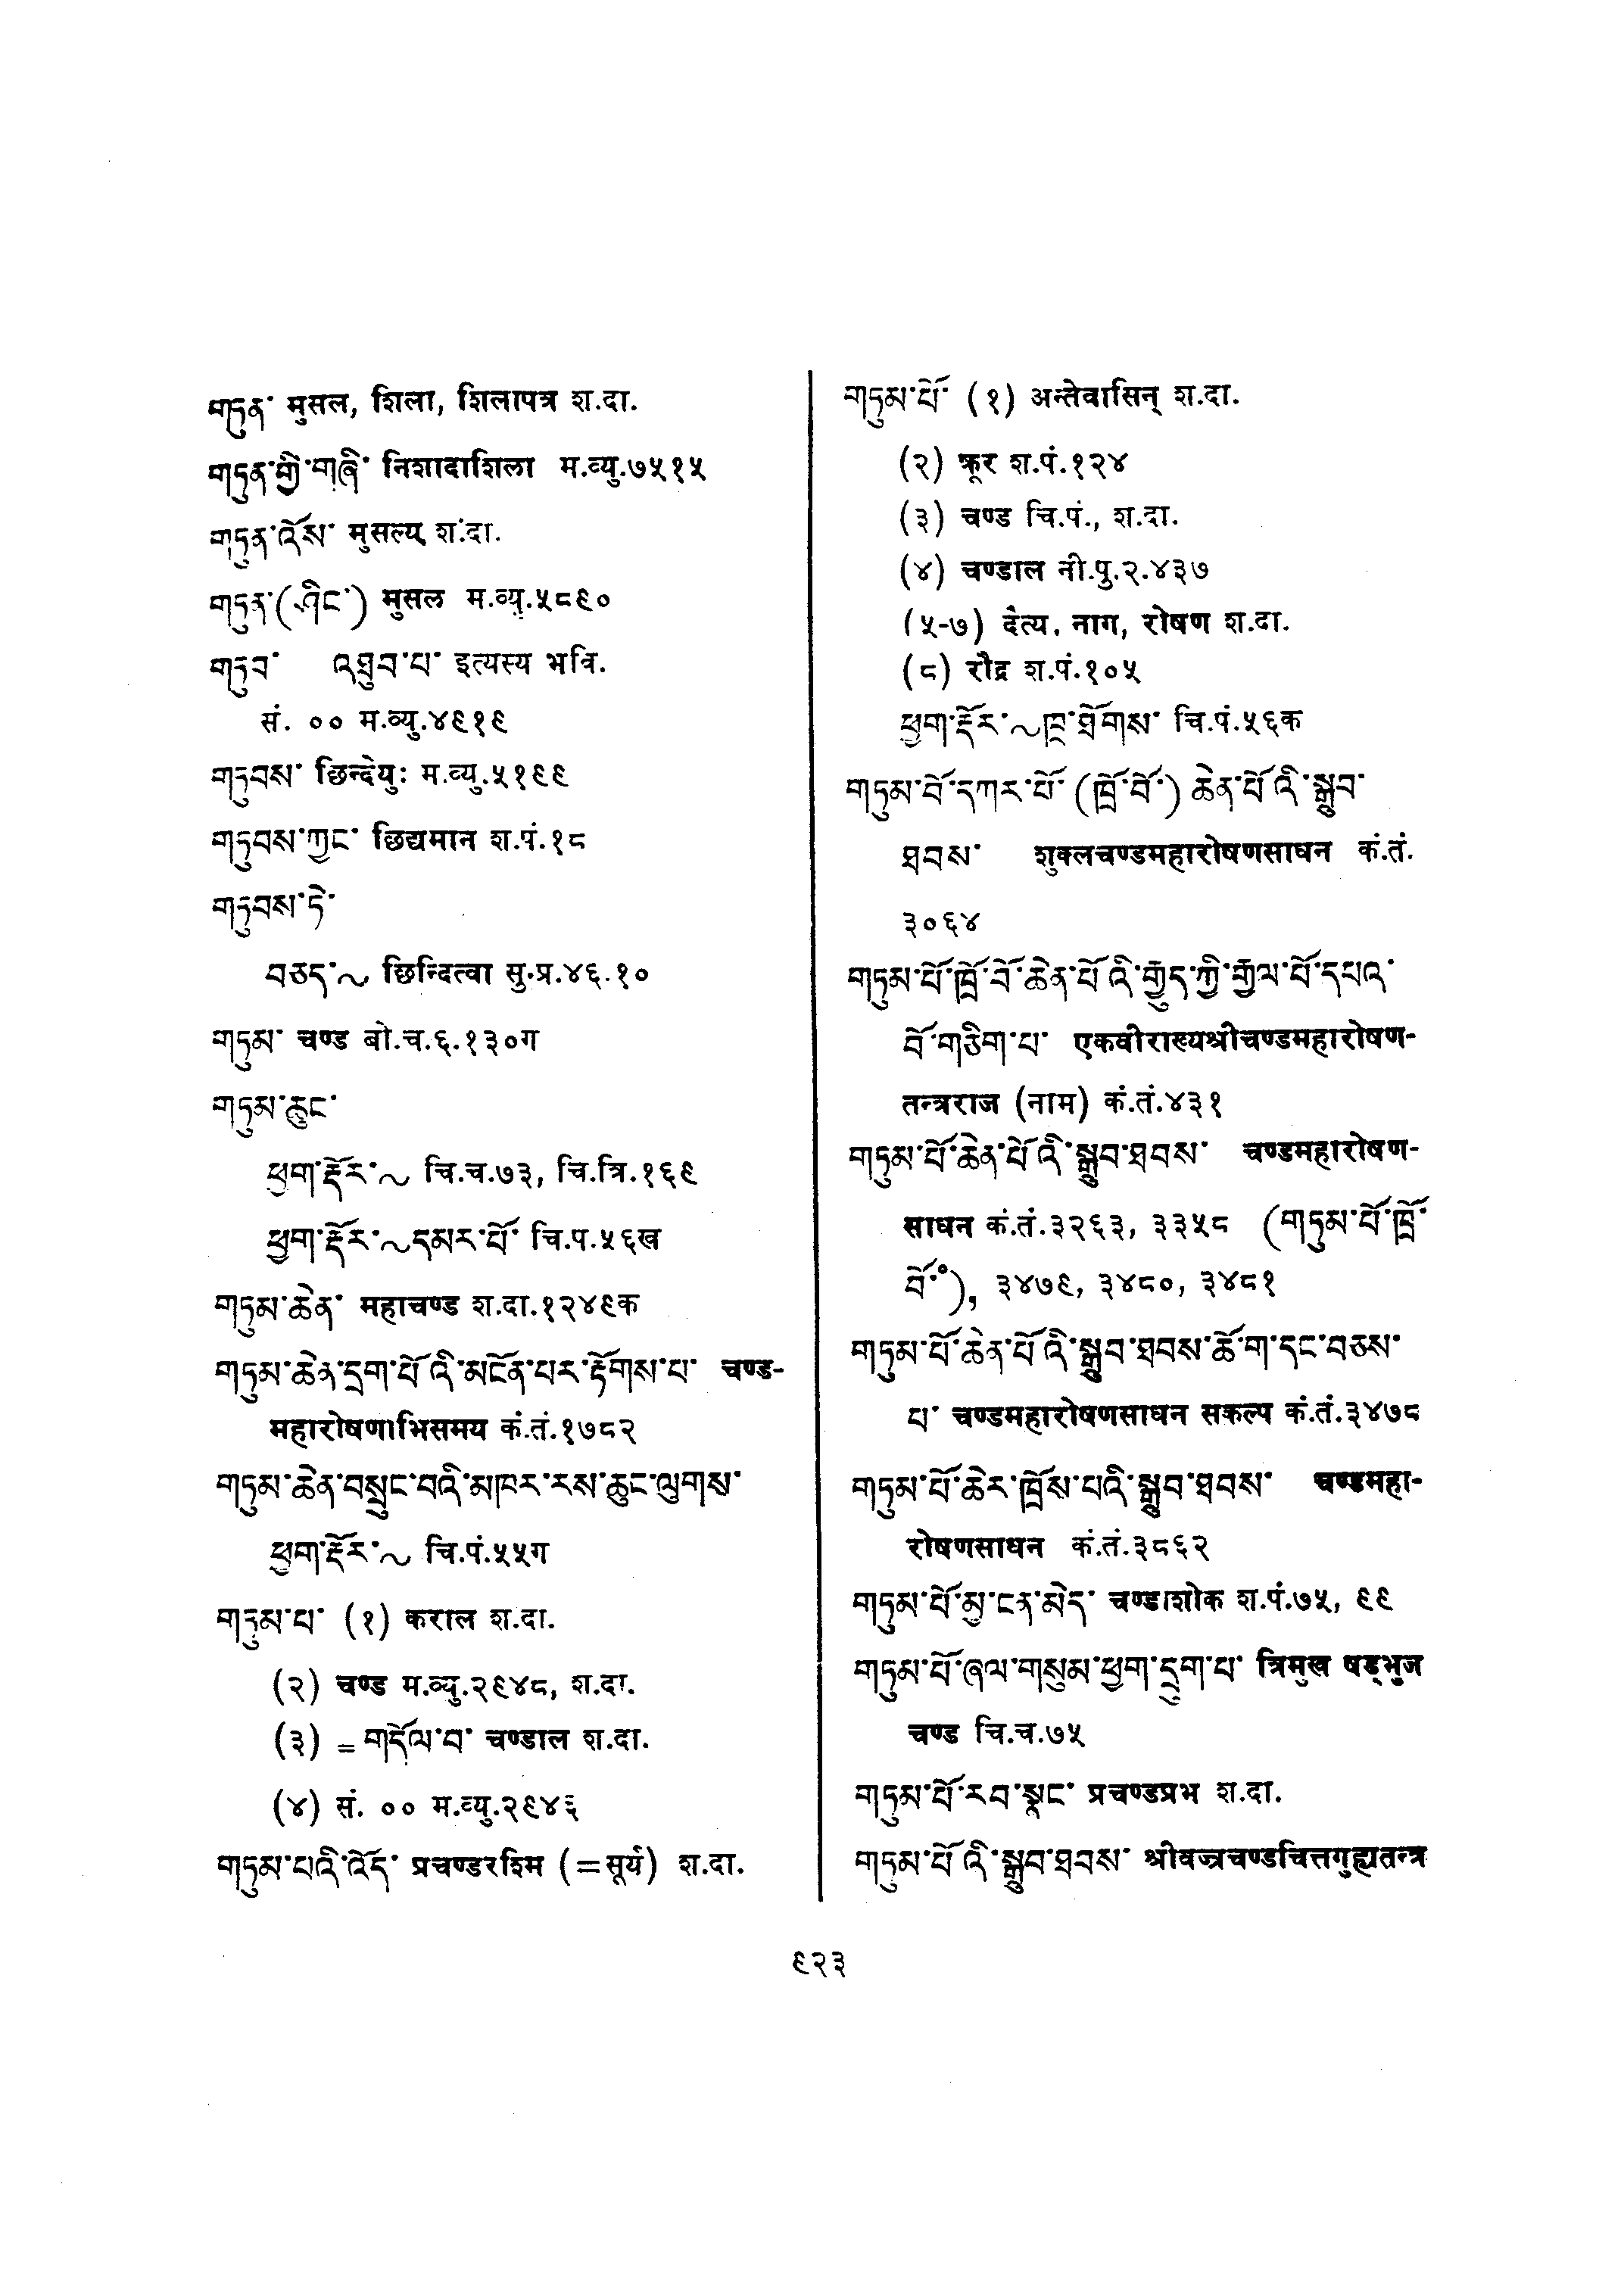 གདུན་ मुसल, शिला, शिलापत्र श.दा.
གདུན་གྱི་གཞི་ निशादाशिला म.व्यु.७५१५
གདུན་འོས་ मुसल्य श.दा.
གདུན་(ཤིང་) मुसल म.व्यु.५८९०
གདུབ་ འཐུབ་པ་ इत्यस्य भवि.
सं. ०० म.व्यु.४९१९
གདུབས་ छिन्देयुः म.व्यु.५१९९
གདུབས་ཀྱང་ छिद्यमान श.पं.१८
གདུབས་ཏེ་
བཅད་~ छिन्दित्वा सु.प्र.४६.१०
གདུམ་ चण्ड बो.च.६.१३०ग
གདུམ་ཆུང་
ཕྱག་རྡོར་~ चि.च.७३, चि.त्रि.१६९
ཕྱག་རྡོར་~དམར་པོ་ चि.प.५६ख
གདུམ་ཆེན་ महाचण्ड श.दा.१२४९क
གདུམ་ཆེན་དྲག་པོ་འི་མངོན་པར་རྟོགས་པ་ चण्ड-
महारोषणाभिसमय कं.तं.१७८२
གདུམ་ཆེན་བསྲུང་བའི་མཁར་རས་ཆུང་ལུགས་
ཕྱག་རྡོར་~ चि.पं.५५ग
གདུམ་པ་ (१) कराल श.दा.
(२) चण्ड म.व्यु.२९४८, श.दा.
(३) = གདོལ་བ་ चण्डाल श.दा.
(४) सं. ०० म.व्यु.२९४६
གདུམ་པའི་འོད་ प्रचण्डरश्मि (=सूर्य) श.दा.
གདུམ་པོ་ (१) अन्तेवासिन् श.दा.
(२) क्रूर श.पं.१२४
(३) चण्ड चि.पं., श.दा.
(४) चण्डाल नी.पु.२.४३७
(५-७) दैत्य, नाग, रोषण श.दा.
(८) रौद्र श.पं.१०५
ཕྱག་རྡོར་~ཁྲ་ཐོགས་ चि.पं.५६क
གདུམ་བོ་དཀར་པོ་ (ཁྲོ་བོ་) ཆེན་པོ་འི་སྒྲུབ་
ཐབས་ शुक्लचण्डमहारोषणसाधन कं.तं.
३०६४
གདུམ་པོ་ཁྲོ་བོ་ཆེན་པོ་འི་རྒྱུད་ཀྱི་རྒྱལ་པོ་དཔའ་
བོ་གཅིག་པ་ एकवीराख्यश्रीचण्डमहारोषण-
तन्त्रराज (नाम) कं.तं.४३१
གདུམ་པོ་ཆེན་པོ་འི་སྒྲུབ་ཐབས་ चण्डमहारोषण-
साधन कं.तं.३२६३, ३३५८ (གདུམ་པོ་ཁྲོ་
བོ་°), ३४७९, ३४८०, ३४८१
གདུམ་པོ་ཆེན་པོ་འི་སྒྲུབ་ཐབས་ཆོ་ག་དང་བཅས་
པ་ चण्डमहारोषणसाधन सकल्प कं.तं.३४७८
གདུམ་པོ་ཆེར་ཁྲོས་པའི་སྒྲུབ་ཐབས་ चण्डमहा-
रोषणसाधन कं.तं.३८६२
གདུམ་པོ་མྱ་ངན་མེད་ चण्डाशोक श.पं.७५, ९९
གདུམ་པོ་ཞལ་གསུམ་ཕྱག་དྲུག་པ་ त्रिमुख षड्भुज
चण्ड चि.च.७५
གདུམ་པོ་རབ་སྣང་ प्रचण्डप्रभ श.दा.
གདུམ་པོ་འི་སྒྲུབ་ཐབས་ श्रीवज्रचण्डचित्तगुह्यतन्त्र
९२३